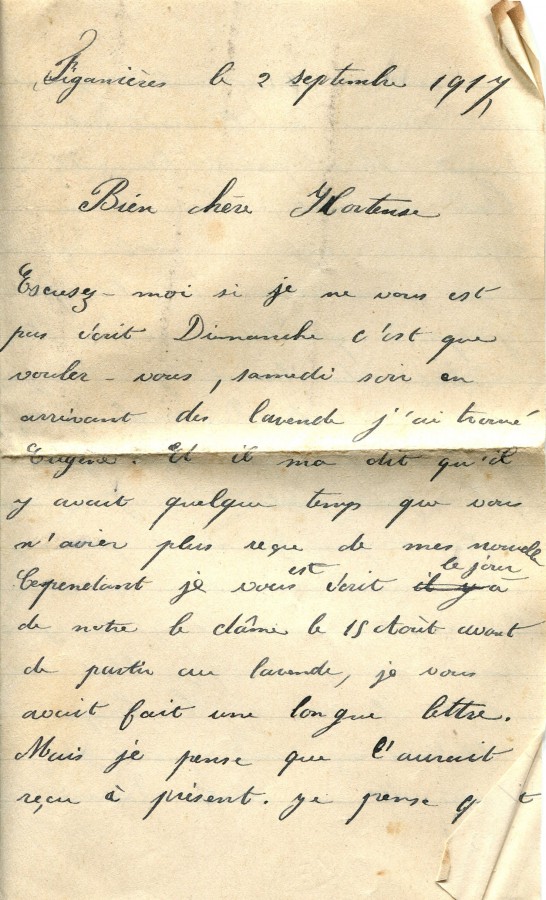 Figanières le 2 septembre 1917
Bien chère Hortense
Escusez-moi si je ne vous est
pas écrit Dimanche c'est que
vouler-vous, samedi soir en
arrivant des lavende j'ai trouvé
Eugène. Et il ma dit qu'il
y avait quelque temp que vous
n'avier plus reçue de mes nouvelle
Cependant je vous est écrit il y a le jour
de notre le dâme le 15 Août avant
de partir au lavende, je vous
avait fait une longue lettre.
Mais je pense que l'aurait
reçu à présent. ye pense